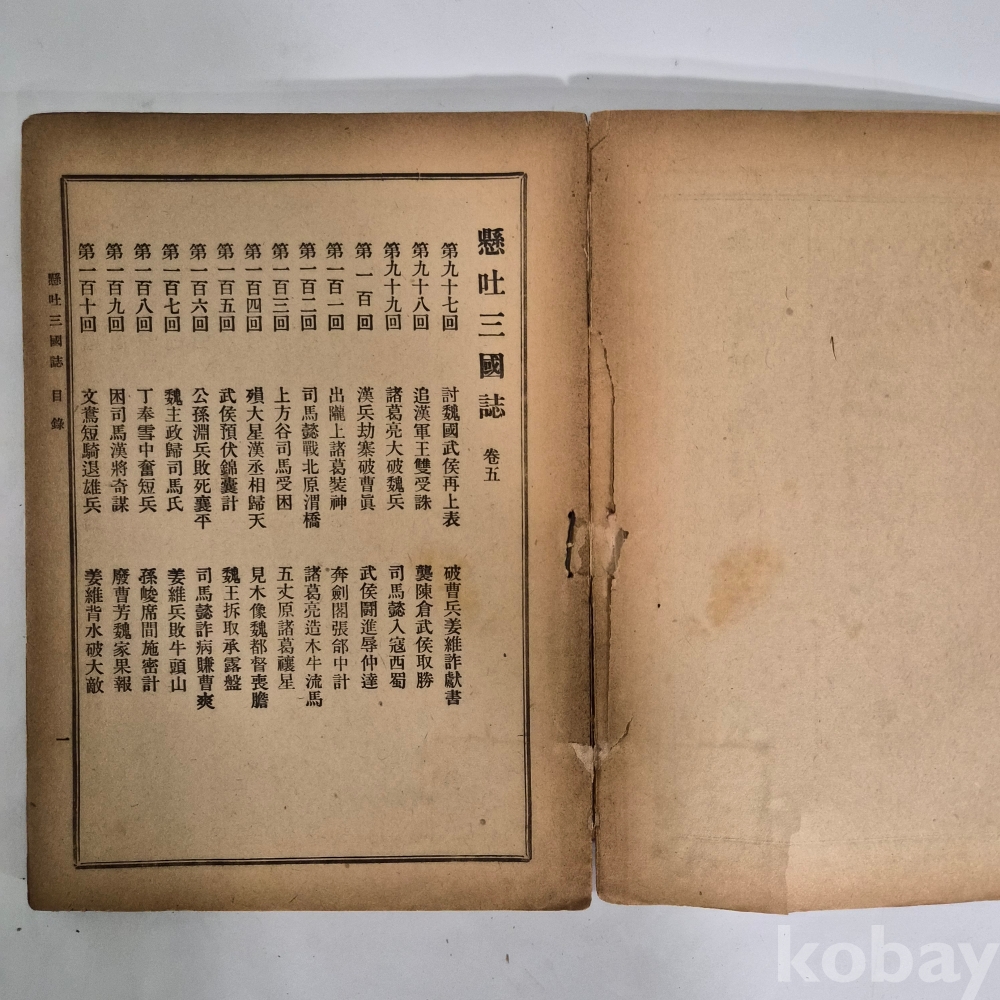 懸吐三國誌 卷五
第九十七回 討魏國武侯再上表 破曹兵姜維詐獻書
第九十八回 追漢軍王雙受誅 襲陳倉武侯取勝
第九十九回 諸葛亮大破魏兵 司馬懿入寇西蜀
第一百回 漢兵劫寨破曹眞 武侯鬪進辱仲達
第一百一回 出隴上諸葛裝神 奔劍閣張郃中計
第一百二回 司馬懿戰北原渭橋 諸葛亮造木牛流馬
第一百三回 上方谷司馬受困 五丈原諸葛禳星
第一百四回 殞大星漢丞相歸天 見木像魏都督喪膽
第一百五回 武侯預伏錦囊計 魏王拆取承露盤
第一百六回 公孫淵兵敗死襄平 司馬懿詐病賺曹爽
第一百七回 魏主政歸司馬氏 姜維兵敗牛頭山
第一百八回 丁奉雪中奮短兵 孫峻席間施密計
第一百九回 困司馬漢將奇謀 廢曹芳魏家果報
第一百十回 文鴦短騎退雄兵 姜維背水破大敵
懸吐三國誌 目錄
一
kobay